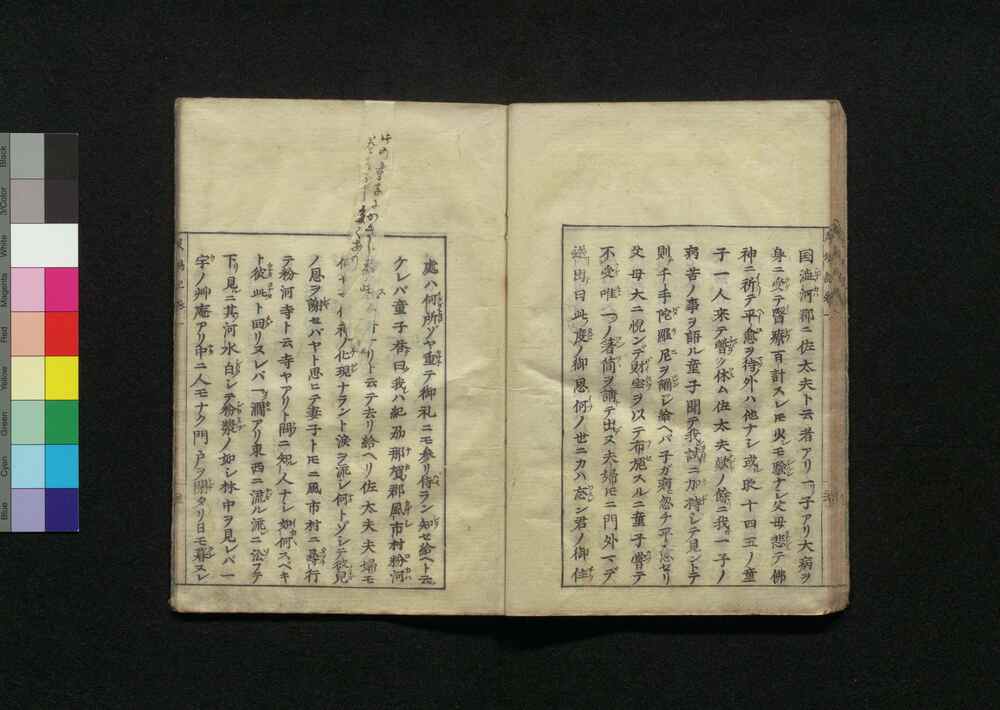 国澁河郡ニ佐太夫ト云者アリ一子アリ大病ヲ
身ニ受テ醫療百計スレモ少シモ驗ナシ父母悲テ佛
神ニ祈テ平愈ヲ待外ハ他ナシ或時十四五ノ童
子一人来テ暫ク休ム佐太夫歎ノ餘ニ我一子ノ
病苦ノ事ヲ語ル童子聞テ我試ニ加持シテ見ントテ
則千手陀羅尼ヲ誦シ給ヘバ子ガ病忽チ平愈セリ
父母大ニ悦ンデ財宝ヲ以テ布施スルニ童子嘗テ
不受唯一ノ箸筒ヲ請テ出ス夫婦モニ門外マデ
送出曰此度ノ御恩何ノ世ニカハ忘ン君ノ御住
此の
處ハ何所ゾヤ重テ御礼ニモ参リ侍ラン知セ給ヘト云
ケレバ童子答曰我ハ紀刕那賀郡風市村粉河
リト云テ去リ給ヘリ佐太夫夫婦モ
ノ化現ナラント涙ヲ流シ何トゾシテ彼兒
ノ恩ヲ謝セバヤト思ニテ妻子トモニ風市村ニ尋行
テ粉河寺ト云寺ヤアリト問ニ知人ナシ如何スベキ
ト彼此ト回リヌレバ一澗アリ東西ニ流ル流ニ沿フテ
下リ見ニ其河水白シテ粉漿ノ如シ林中ヲ見レバ一
宇ノ艸庵アリ中ニ人モナク門戸ヲ閉タリ日モ暮ヌレ
Black
3/Color
White
Magenta
Red
Yellow
Green
Cyan
Blue